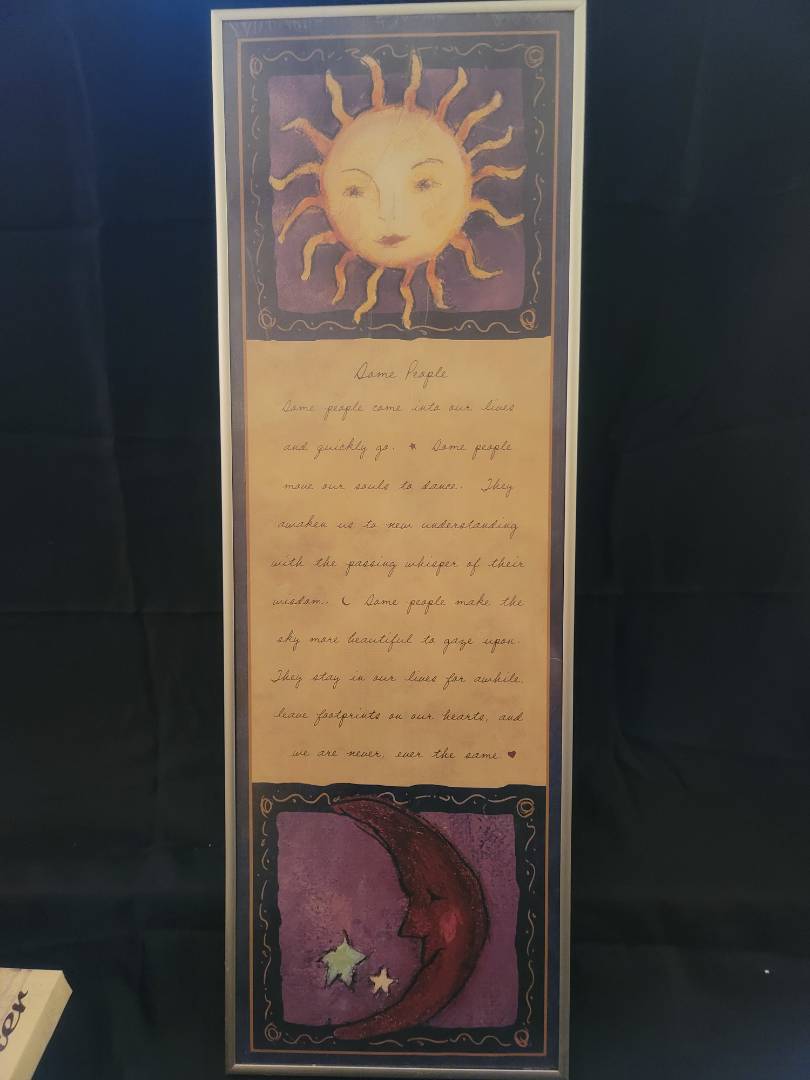 Some People
Some people come into our lives
and quickly go. * Some people
move our souls to dance. They
awaken us to new understanding
with the passing whisper of their
wisdom. ☾ Some people make the
sky more beautiful to gaze upon.
They stay in our lives for awhile,
leave footprints on our hearts, and
we are never, ever the same ♥